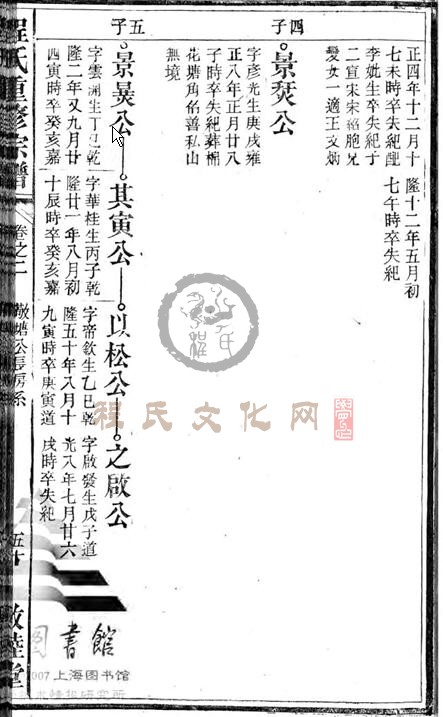 四子
五子
正四年十二月十
七未時卒失紀配
李妣生卒失紀子
二宣宋宋紹胞兄
愛女一適王文炳
隆十二年五月初
七午時卒失紀
景焚公
字彦光生庚戌雍
正八年正月廿八
子時卒失紀葬柳
花塘角伯善私山
無境
景昊公
字雲洲生丁巳乾
隆二年又九月廿
四寅時卒癸亥嘉
其寅公
字華桂生丙子乾
隆廿一年八月初
十辰時卒癸亥嘉
以松公
字帝欽生乙巳乾
隆五十年八月十
九寅時卒庚寅道
之啟公
字啟發生戊子道
光八年七月廿六
戌時卒失紀
程氏重修宗譜
卷之二
墩塘公長房系
五十
敦睦堂
程氏文化网
書館
2007 上海图书馆